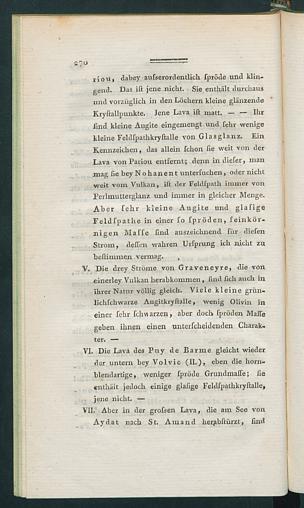 270
riou, dabey aufserordentlich spröde und klin-
gend. Das ist jene nicht. Sie enthält durchaus
und vorzüglich in den Löchern kleine glänzende
Krystallpunkte. Jene Lava ist matt. — — Ihr
sind kleine Augite eingemengt und sehr wenige
kleine Feldspathkrystalle von Glasglanz. Ein
Kennzeichen, das allein schon sie weit von der
Lava von Pariou entfernt; denn in dieser, man
mag sie bey Nohanent untersuchen, oder nicht
weit vom Vulkan, ist der Feldspath immer von
Perlmutterglanz und immer in gleicher Menge.
Aber sehr kleine Augite und glasige
Feldspathe in einer so spröden, feinkör-
nigen Masse sind auszeichnend für diesen
Strom, dessen wahren Ursprung ich nicht zu
bestimmen vermag.
V. Die drey Ströme von Graveneyre, die von
einerley Vulkan herabkommen, sind sich auch in
ihrer Natur völlig gleich. Viele kleine grün-
lichschwarze Augitkrystalle, wenig Olivin in
einer sehr schwarzen, aber doch spröden Masse
geben ihnen einen unterscheidenden Charak-
ter. —
VI. Die Lava des Puy de Barme gleicht wieder
der untern bey Volvic (II.), eben die horn-
blendartige, weniger spröde Grundmasse; sie
enthält jedoch einige glasige Feldspathkrystalle,
jene nicht. —
VII. Aber in der grossen Lava, die am See von
Aydat nach St. Amand herabstürzt, sind